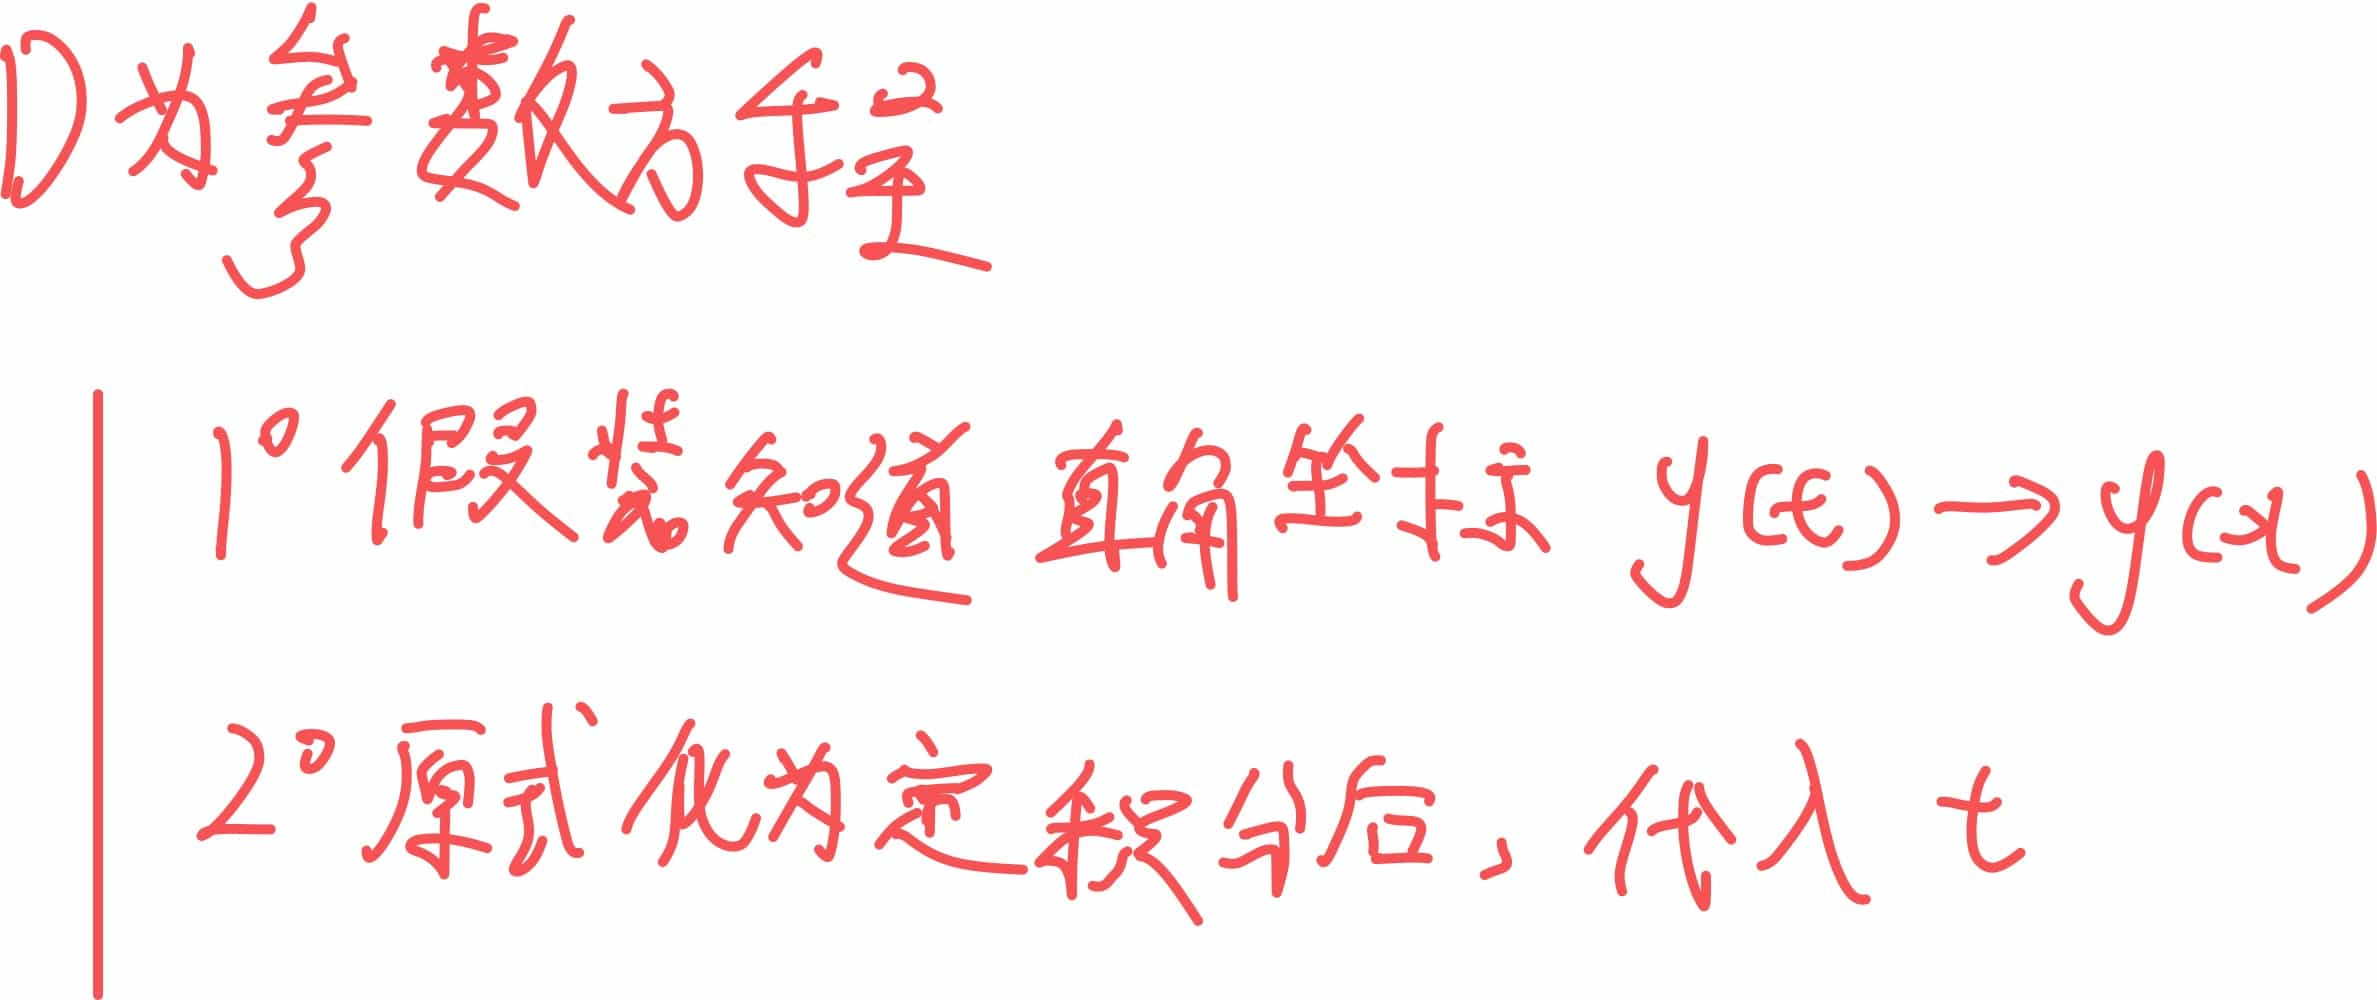 D为参数方程
1° 假装知道直角坐标 y(t) → y(x)
2° 原式化为定积分后，代入 t